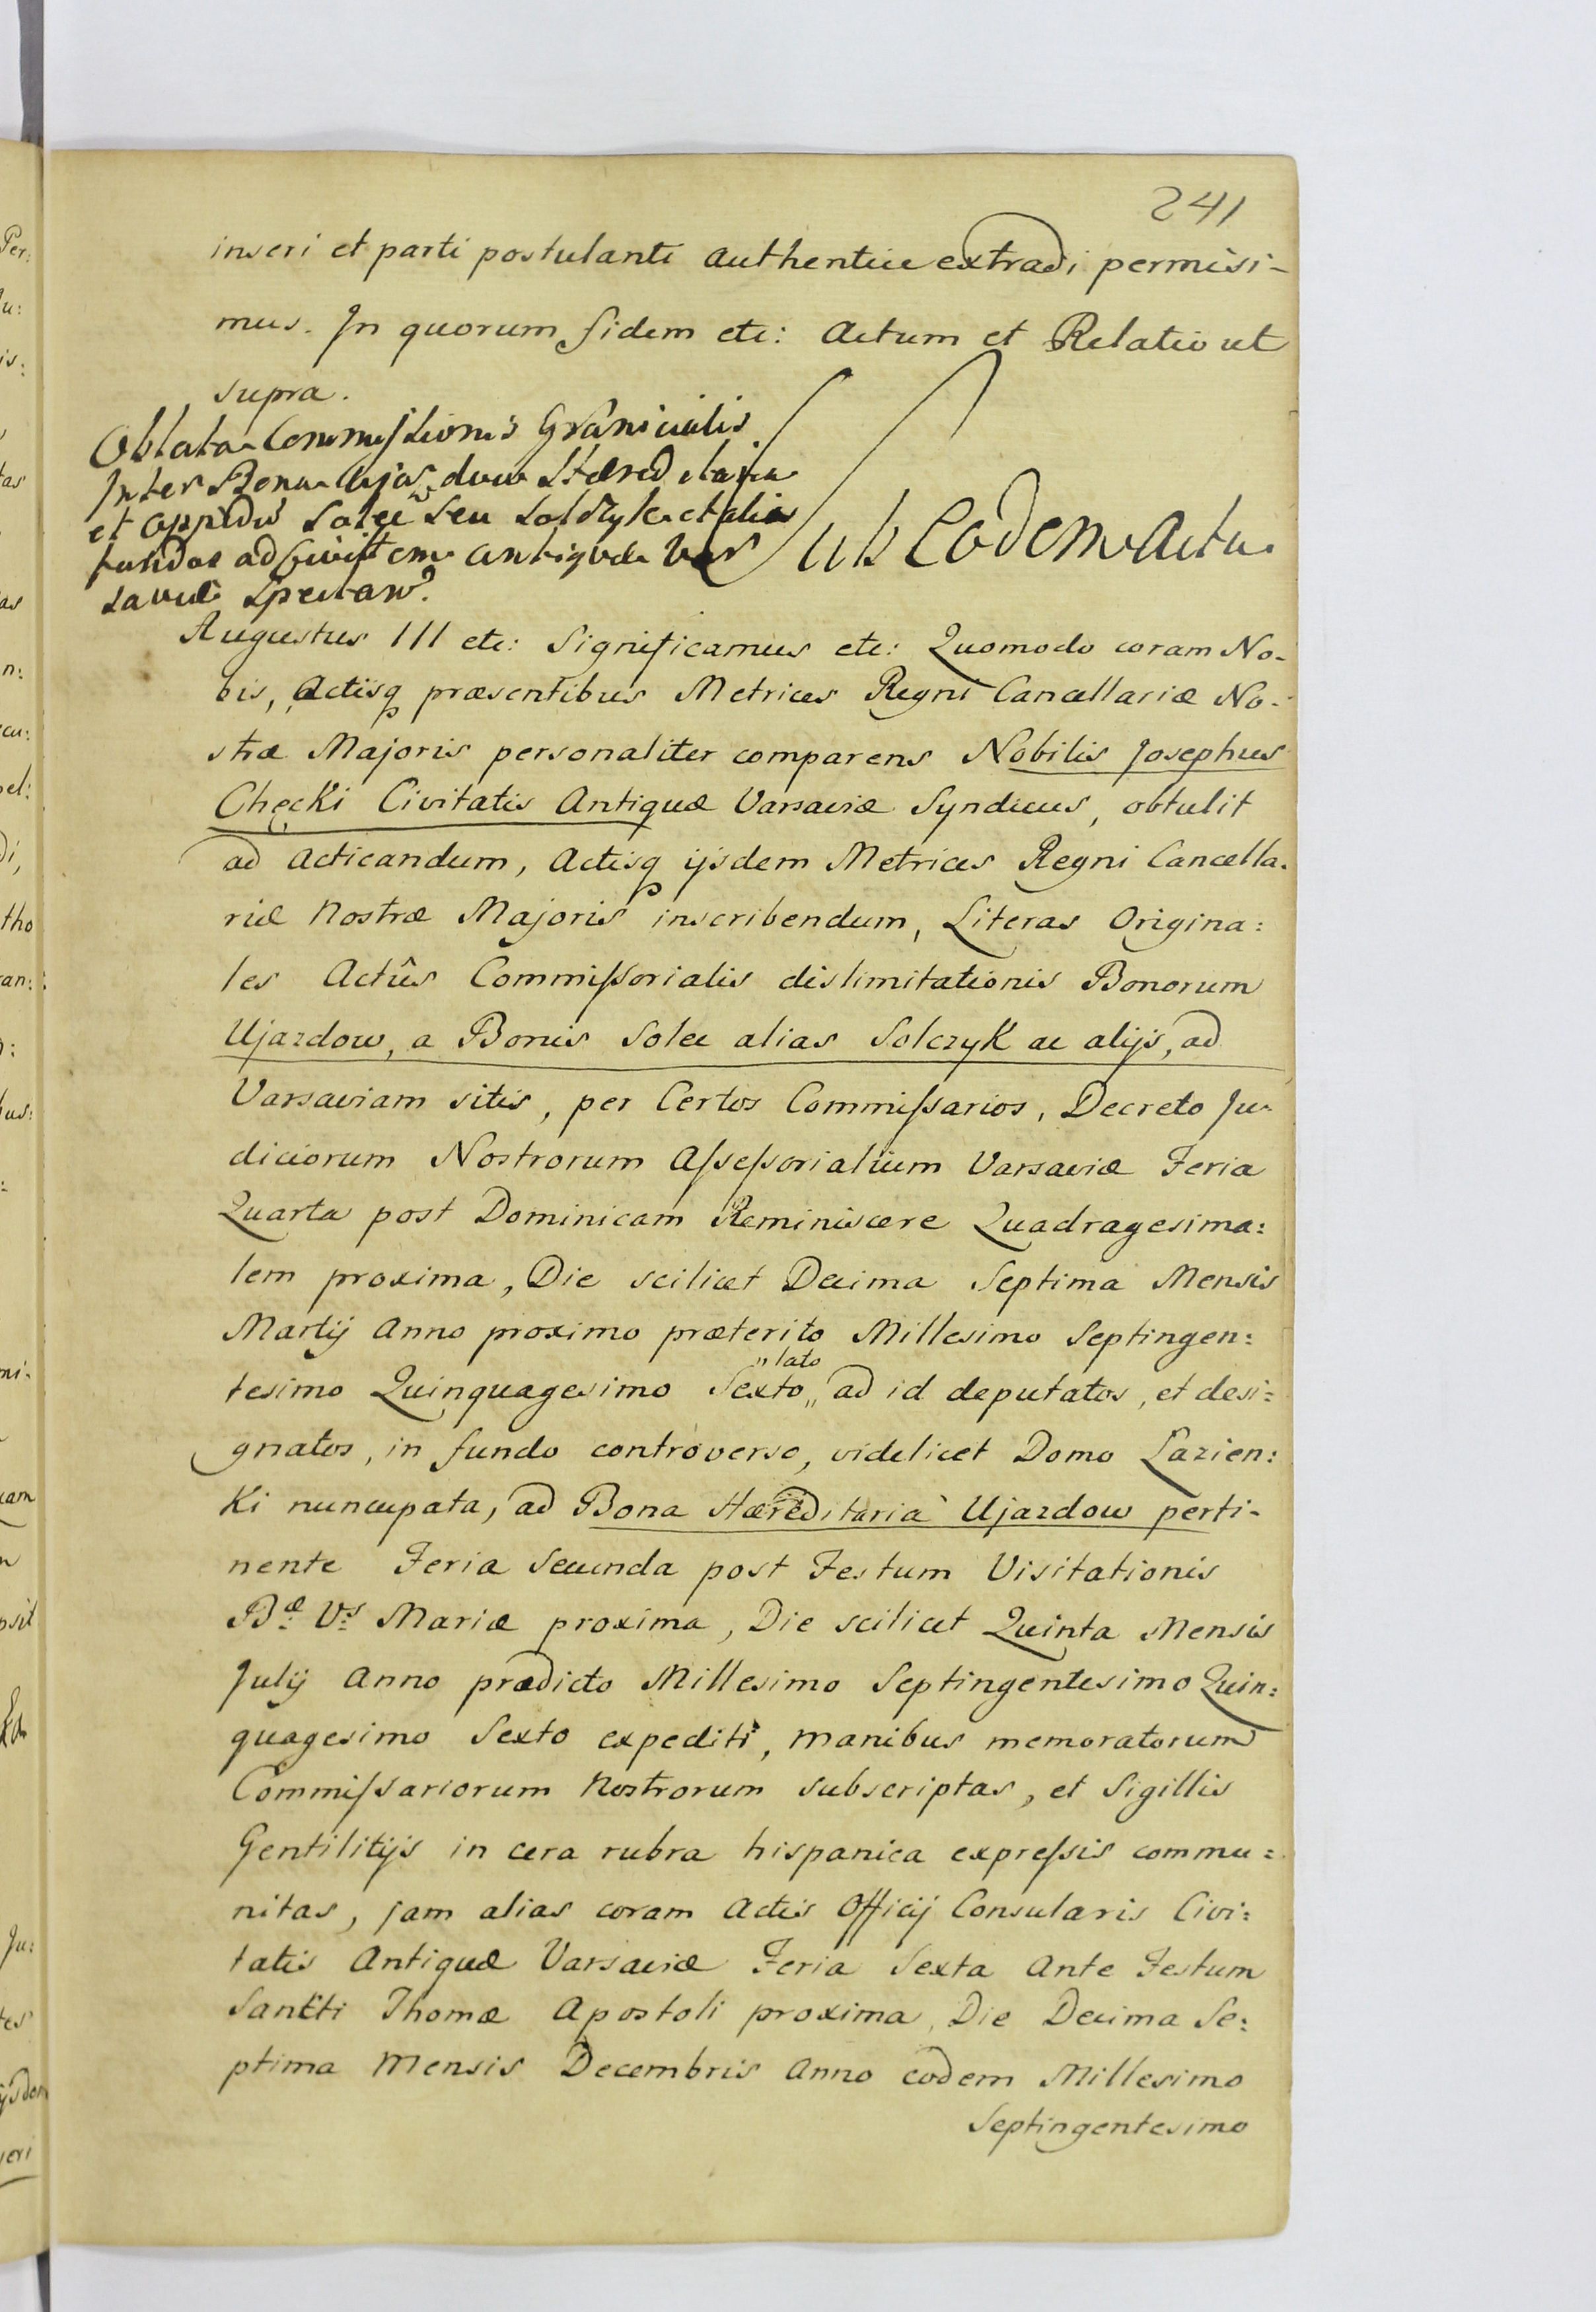 241
inseri et parti postulanti authentice extradi permisi-
mus. In quorum fidem etc: Actum et Relatio ut
supra.
Oblata Commissionis Granicialis
Inter Bona Ujasdow Hæreditaria
et oppidū Solec seu Solczyk et alia
fundos ad Civitem antiquæ Var
saviæ spectan̄.
Sub Eodem Actu.
Augustus III etc: Significamus etc: Quomodo coram No-
bis, Actisq præsentibus Metrices Regni Cancellariæ No-
stræ Majoris personaliter comparens Nobilis Josephus
Chęcki Civitatis Antiquæ Varsaviæ Syndicus, obtulit
ad Acticandum, Actisq ijsdem Metrices Regni Cancella-
riæ Nostræ Majoris inscribendum, Literas Origina:
les Actûs Commissorialis dislimitationis Bonorum
Ujazdow, a Bonis Solec alias Solczyk ac alijs, ad
Varsaviam sitis, per Certos Commissarios, Decreto Ju-
diciorum Nostrorum Assessorialium Varsaviæ Feria
Quarta post Dominicam Reminiscere Quadragesima:
lem proxima, Die scilicet Decima Septima Mensis
Martij Anno proximo præterito Millesimo Septingen:
tesimo Quinquagesimo Sexto „lato„ ad id deputatos, et desi:
gnatos, in fundo controverso, videlicet Domo Łazien:
ki nuncupata, ad Bona Hæreditaria Ujazdow perti-
nente Feria Secunda post Festum Visitationis
Bæ Vs Mariæ proxima, Die scilicet Quinta Mensis
Julij Anno prædicto Millesimo Septingentesimo Quin:
quagesimo Sexto expediti, manibus memoratorum
Commissariorum Nostrorum subscriptas, et Sigillis
Gentilitijs in cera rubra hispanica expressis commu:
nitas, jam alias coram Actis Officij Consularis Civi:
tatis Antiquæ Varsaviæ Feria Sexta Ante Festum
Sancti Thomæ Apostoli proxima, Die Decima Se:
ptima Mensis Decembris Anno eodem Millesimo
Septingentesimo